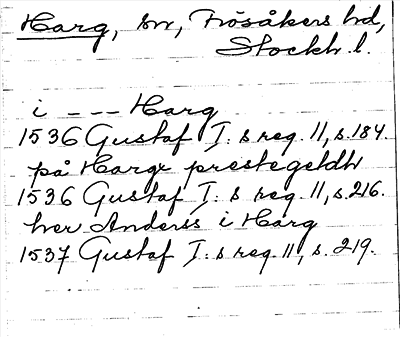 Harg, sn, Frösåkers hd,
Stockh. l.
i - - - Harg
1536 Gustaf I: s reg. 11, s. 184.
på Hargx prestegeldh
1536 Gustaf I: s reg. 11, s. 216.
her Anders i Harg
1537 Gustaf I: s reg. 11, s. 219.